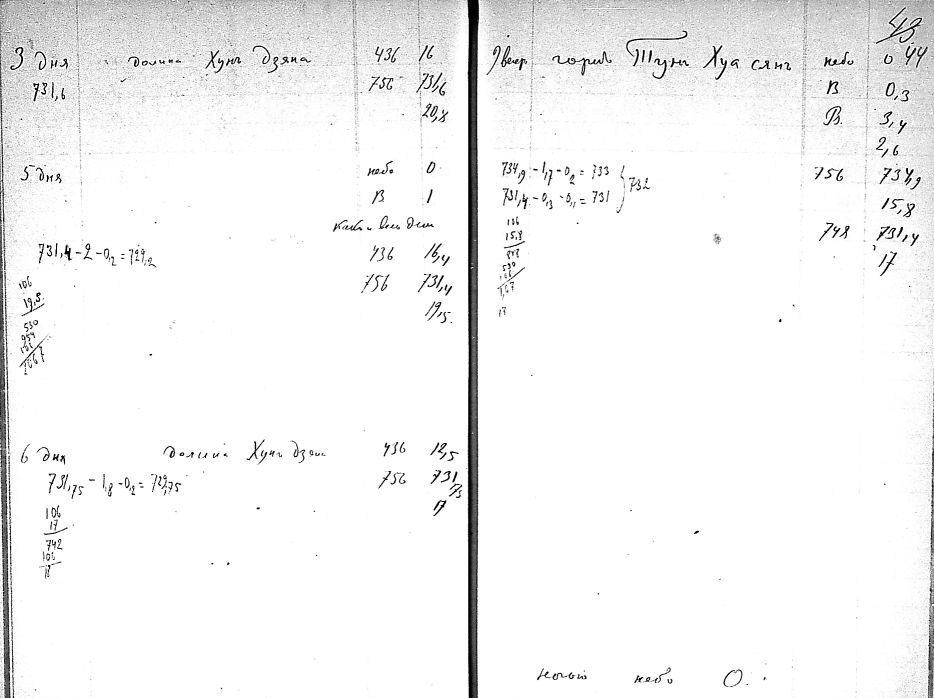 3 дня долина Хунь дзяна 436 16
731,6 756 731,6
20,8
5 дня небо 0
В 1
как и весь день
731,4 - 2 - 0,2 = 729,2 436 16,4
106 756 731,4
19,5 19,5
530
954
106
2067
6 дня долина Хунь дзян 436 12,5
731,75 - 1,8 - 0,2 = 729,75 756 731,75
106 17
17
742
106
18
43
9 вечер город Тунь Хуа сянь небо 0 44
В 0,3
В. 3,4
2,6
734,9 - 1,7 - 0,2 = 733 } 732 756 734,9
731,4 - 0,3 - 0,1 = 731 15,8
106 748 731,4
15,8 17
848
530
106
1,67
17
ночью небо 0.